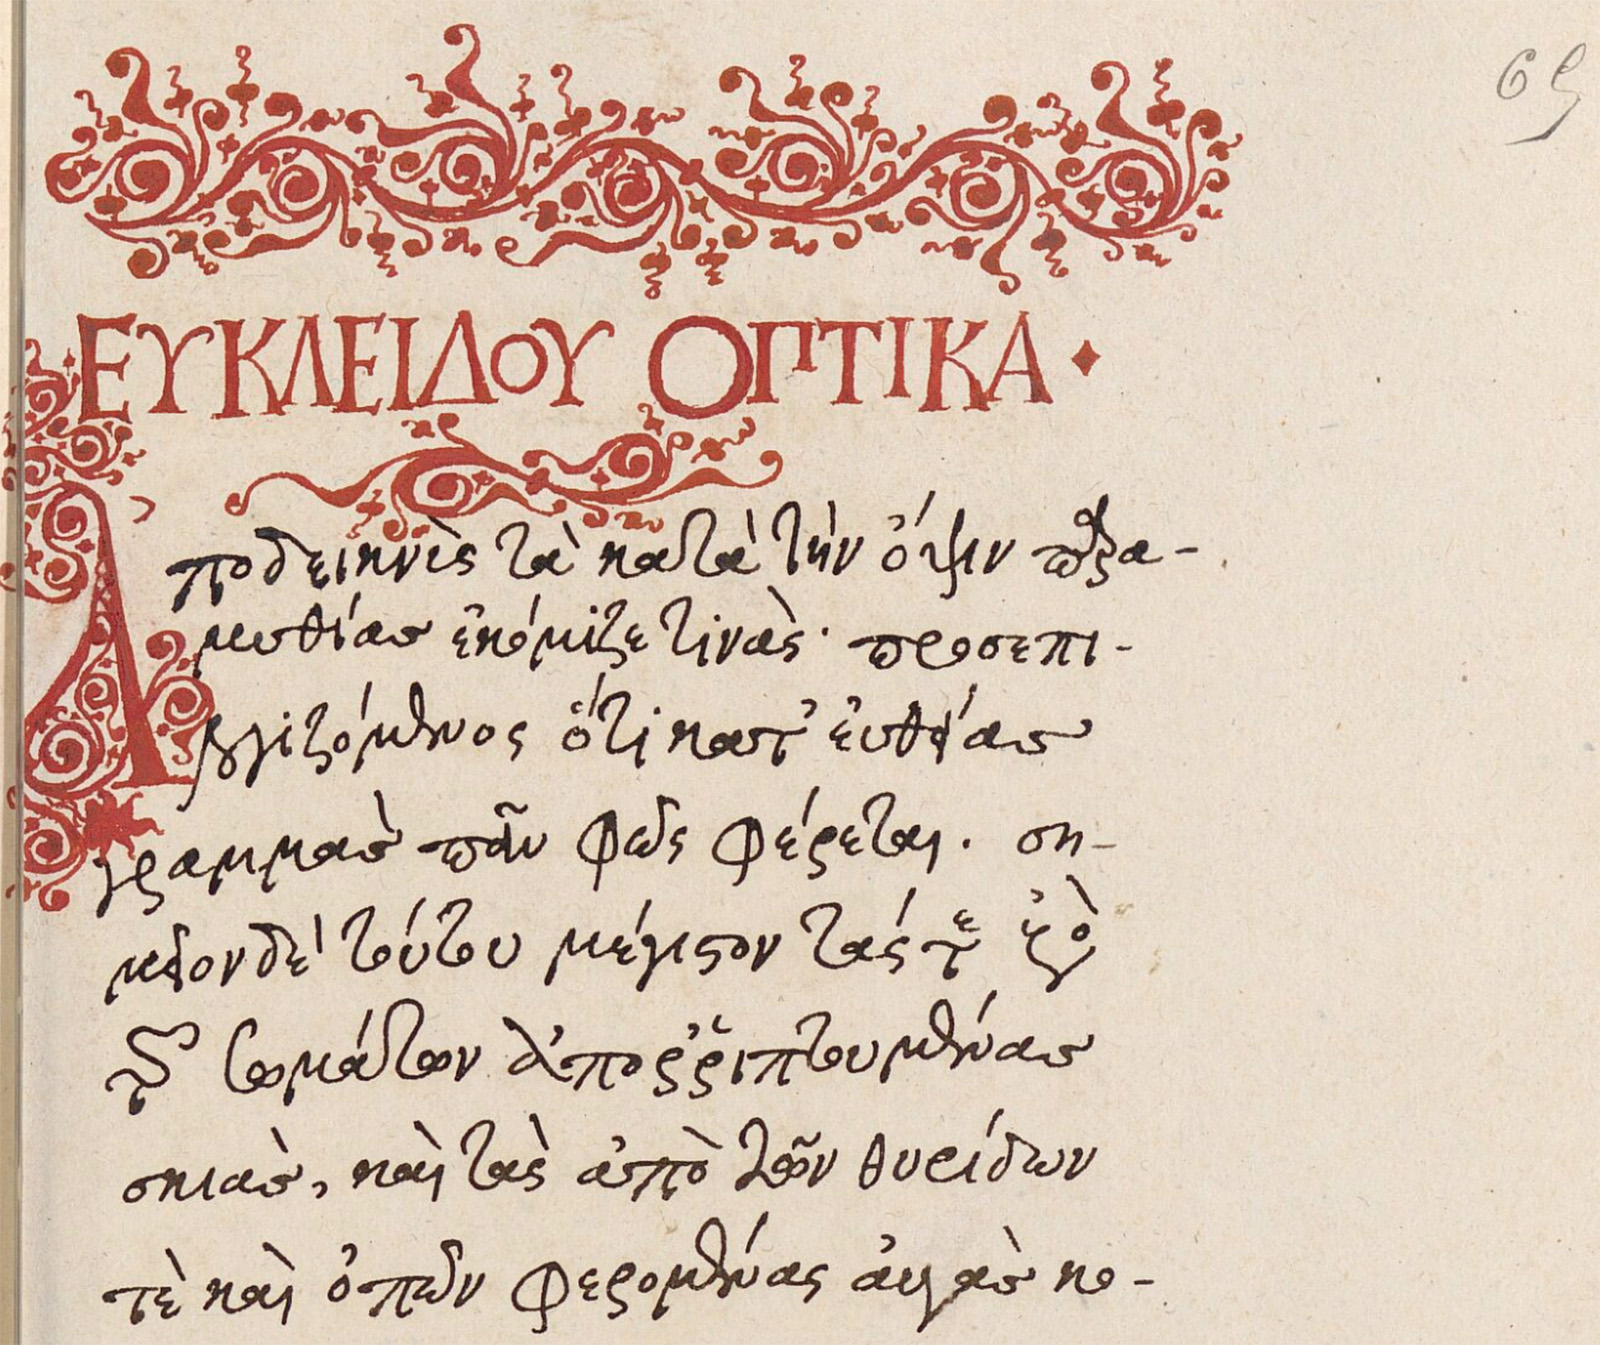 65
ΕΥΚΛΕΙΔΟΥ ΟΠΤΙΚΑ ·
Ἀποδεικνὺς τὰ κατὰ τὴν ὄψιν παρα-
μυθίας ἐκόμιζε τινὰς · προσεπι-
λογιζόμενος ὅτι κατ' ἐυθείας
γραμμὰς πᾶν φῶς φέρεται. ση-
μεῖον δὲ τούτου μέγιστον τάς τε ἀπὸ
τῶν σωμάτων ἀποῤῥιπτουμένας
σκιὰς, καὶ τὰς ἀπὸ τῶν θυρίδων
τὲ καὶ ὀπῶν φερομένας ἀυγὰς κο-